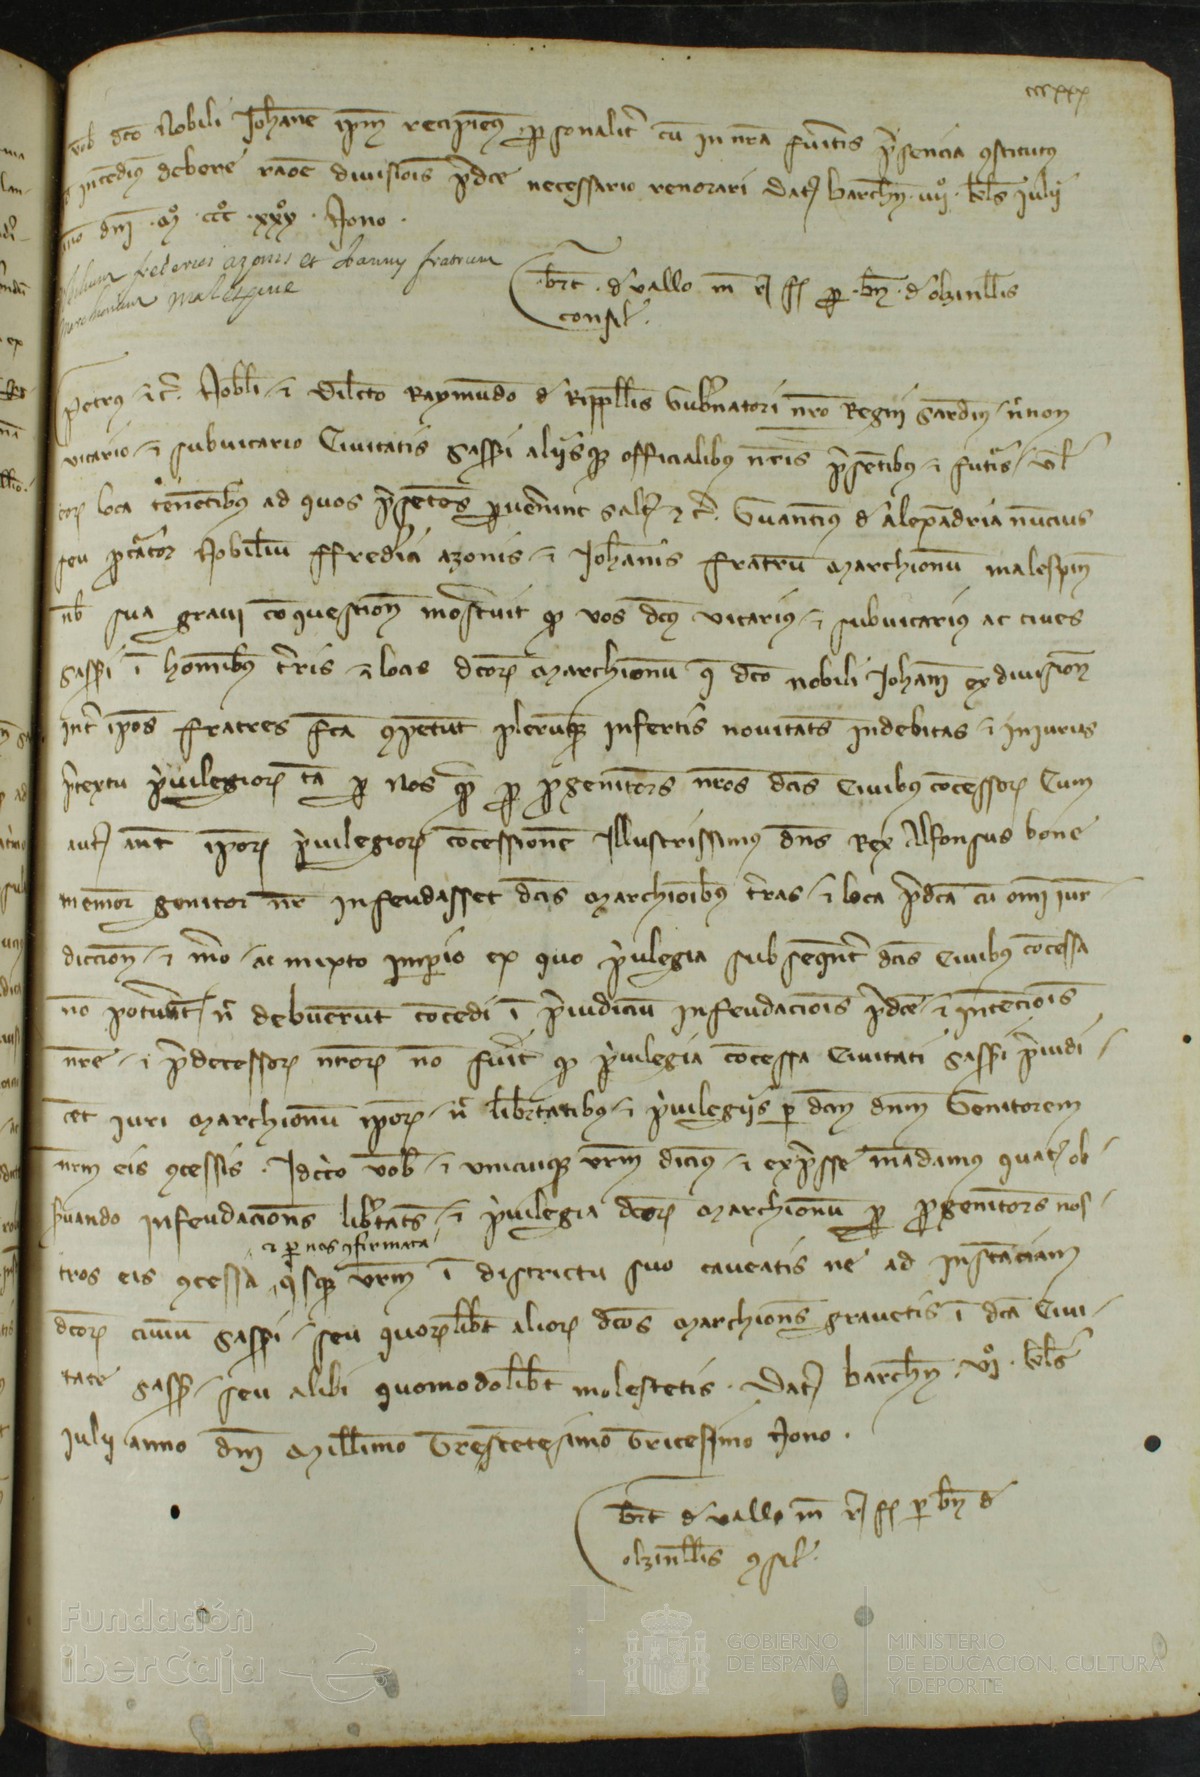 ccxxx
vob dco Nobili Johane ipm recipiens psonalit cu in nra fuitis psencia 9stitutus
incediu debere raoe divisiois pdce necessario renovari Dat barchn vij kls Julij
dni m ccc xxx Nono
frederici azonis et Joannis fratrum
marchionum malespine
brt d vallo m r f p bn d olzinllis
consil
Petrus ⁊c Nobli ⁊ Dilcto Raymundo d Rippllis Gubnatori nro Regni Sardin necnon
vicario ⁊ subvicario Civitatis Sassi aliisq officialibus nris psetibus ⁊ futis vl
eor loca tenentibus ad quos psetes pvenint salt ⁊c Guantius d Alexadria nuncius
seu pcator Nobiliu ffredici azonis ⁊ Johanis fratru Marchionu malespin
nob sua gravi coquestion mostvit q vos dcus vicarius ⁊ subvicarius ac cives
Sassi i hominibus tris ⁊ locis dcor Marchionu q dco nobili Johani ex division
int ipos fratres fca 9petut pleruq infertis novitats indebitas ⁊ iniurias
ptextu pvilegior ta p nos q p pgenitors nros dcis Civibus cocessor Cum
aut ant ipor pvilegior cocessione Illustrissimus dns Rex Alfonsus bone
memor genitor nr infeudasset dcis Marchioibus tras ⁊ loca pdca cu omi iur
diccion ⁊ mro ac mixto impio ex quo pvilegia subseqnt dcis Civibus cocessa
no potuernt n debuerut cocedi i piudiciu infeudaciois pdce ⁊ intenciois
nre ⁊ pdecessor nror no fuit q pvilegia cocessa Civitati Sassi piudi
cet iuri Marchionu ipor n libertatibus ⁊ pvilegiis p dcm dnm Genitorem
nrm eis 9cessis Idcirco vob ⁊ unicuiq vrm dicim ⁊ expsse madamus quat ob
svando infeudacions libtats ⁊ pvilegia dcor Marchionu p pgenitors nos
⁊ p nos 9firmata
tros eis 9cessa qsq vrm i districtu suo caveatis ne ad instaciam
dcor civiu Sassi seu quorlibt alior dcos Marchions gravetis i dca Civi
tate Sass seu alibi quomodolibt molestetis Dat barchn vj kls
Julij anno dni Millimo Trescetesimo Tricesimo Nono
brt d vallo m r f p bn d
olzinllis 9sil
Fundación
iberCaja
GOBIERNO
DE ESPAÑA
MINISTERIO
DE EDUCACIÓN, CULTURA
Y DEPORTE